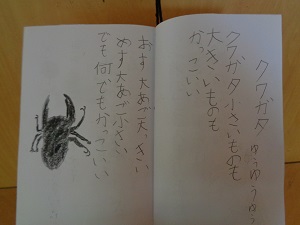 クワガタ ゆうゆうゆう
クワガタ小さいものも
大きいものも
かっこいい
おす 大あご大きい
めす 大あご小さい
でも何でもかっこいい